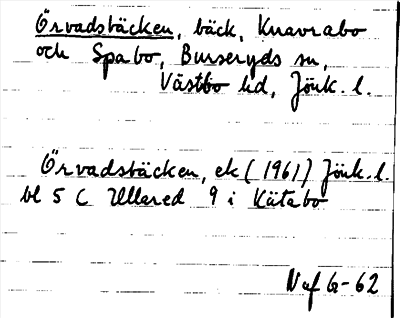 Örvadsbäcken, bäck, Knavrabo
och Spabo, Burseryds sn,
Västbo hd, Jönk. l.
Örvadsbäcken, ek (1961) Jönk. l.
bl 5 C Ullared 9 i Kätabo
Naf G-62